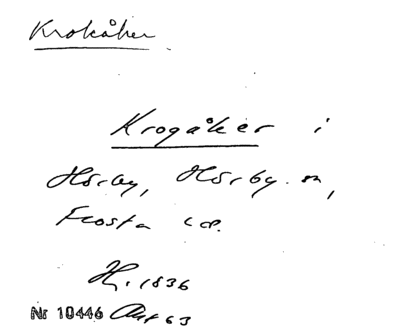 Krokåker
Krogåker i
Hörby, Hörby sn,
Frosta hd.
H. 1836
Nr 10446 Akt 63